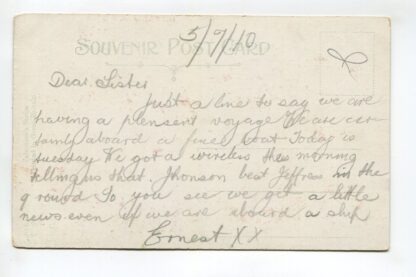 5/7/10
SOUVENIR POST CARD
Dear Sister
Just a line to say we are
having a plensent voyage We are cer
tamly aboard a fine boat Today is
tuesday We got a wireless this morning
telling us that. Jhonson beat Jeffress in the
ground So you see we get a little
news even if we are aboard a ship
Ernest XX